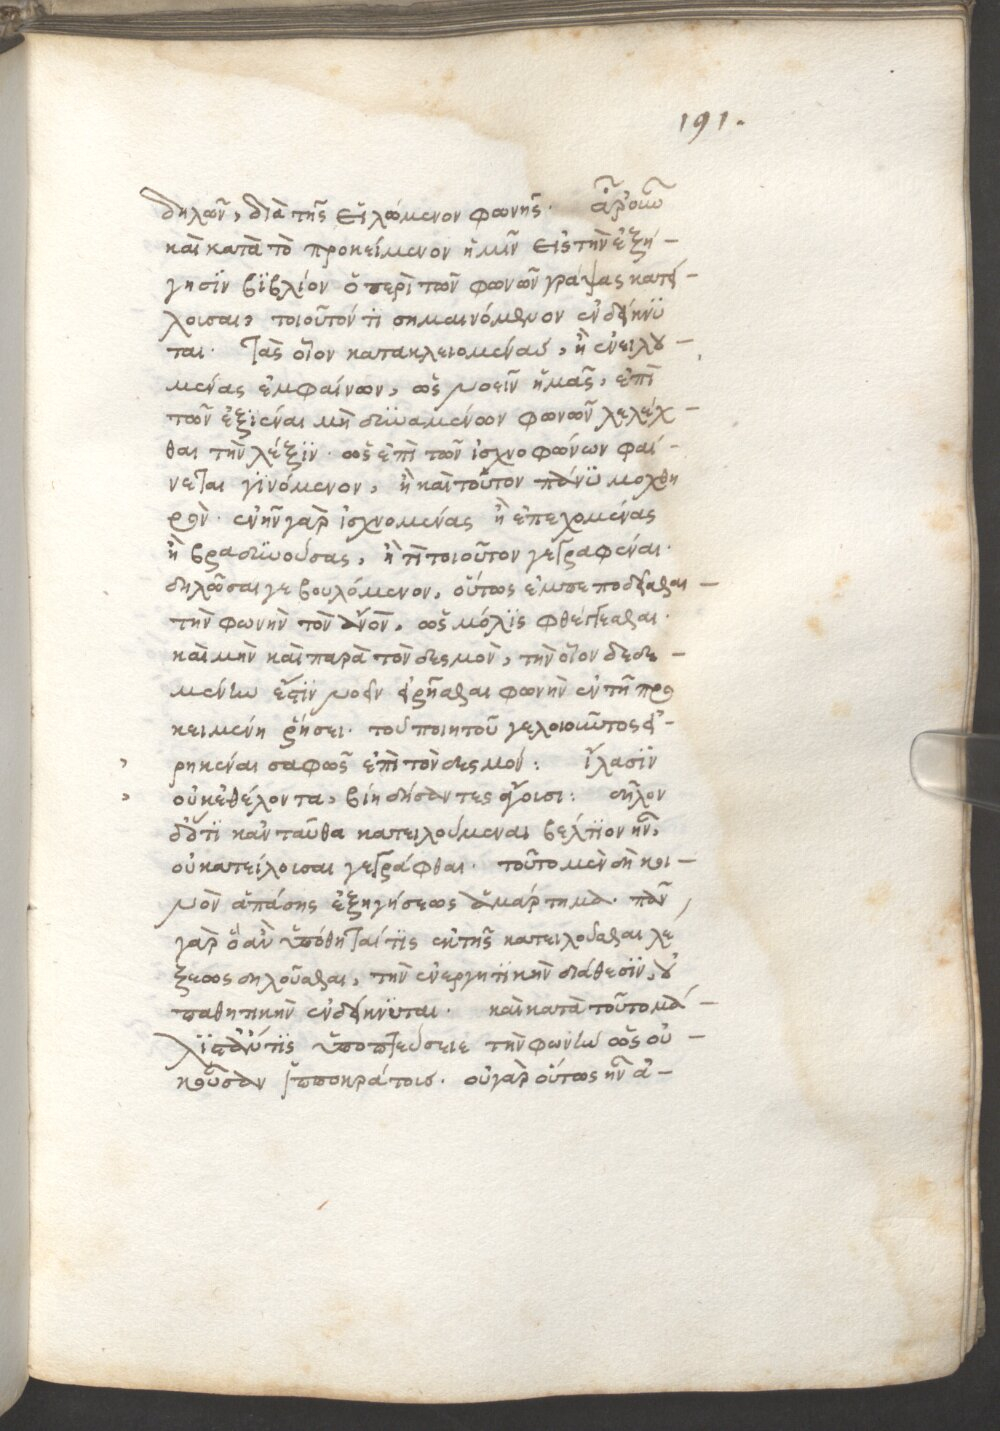 191.
δηλῶν, διὰ τῆς εἰλόμενον φωνῆς. ἆρ' οὖν
καὶ κατὰ τὸ προκείμενον ἡμῖν εἰς τὴν ἐξή-
γησϊν βϊβλίον ὁ περὶ τῶν φωνῶν γράψας κατεί-
λοισαι, τοιοῦτόν τϊ σημαινόμενον ἐνδείκνϋ
ται. τὰς οἷον κατακλειομένας, ἢ ἐνειλου-
μένας ἐμφαίνων, ὡς νοεῖν ἡμᾶς, ἐπὶ
τῶν ἐξϊέναι μὴ δυναμένων φωνῶν λελέχ-
θαι τὴν λέξϊν. ὡς ἐπὶ τῶν ἰσχνοφώνων φαί-
νεται γϊνόμενον, ἢ καὶ τοῦτον πάνϋ μοχθη
ρόν. ἐνῆν γὰρ ἰσχνομένας ἢ ἐπεχομένας
ἢ βραδυνούσας, ἤ τι τοιοῦτον γεγραφέναι.
δηλῶσαί γε βουλόμενον, οὕτως ἐμπεποδίσθαι
τὴν φωνὴν τὸν ὄνον, ὡς μόλϊς φθέγγεσθαι.
καὶ μὴν καὶ παρὰ τὸν δεσμὸν, τὴν οἷον δεδε-
μένην ἐστϊν νοεῖν εἰρῆσθαι φωνὴν ἐν τῇ προ
κειμένῃ ῥήσει. τοῦ ποιητοῦ γελοιοῶντος εἰ-
ρηκέναι σαφῶς ἐπὶ τὸν δεσμοῦ: ἴλασϊν
οὐκ ἐθέλοντα, βίη δήσαντες ἄγοισι: δῆλον
δ' ὅτϊ κἀν ταῦθα κατειλούμεναι βέλτϊον ἦν,
οὐ κατείλοισαι γεγράφθαι. τοῦτο μὲν δὴ κοι-
νὸν ἁπάσης ἐξηγήσεως ἁμάρτημα. πᾶν
γὰρ ὃ ἂν ὑπόθηταί τϊς ἐκ τῆς κατειλοῦσθαι λέ
ξεως δηλοῦσθαι, τὴν ἐνεργητϊκὴν διάθεσϊν, οὐ
παθητικὴν ἐνδείκνϋται. καὶ κατὰ τοῦτο μά-
λϊστ' ἄν τϊς ὑποπτεύσειε τὴν φωνὴν ὡς οὐ-
κ οὖσαν ἱπποκράτοις. οὐ γὰρ οὕτως ἦν ἀ-